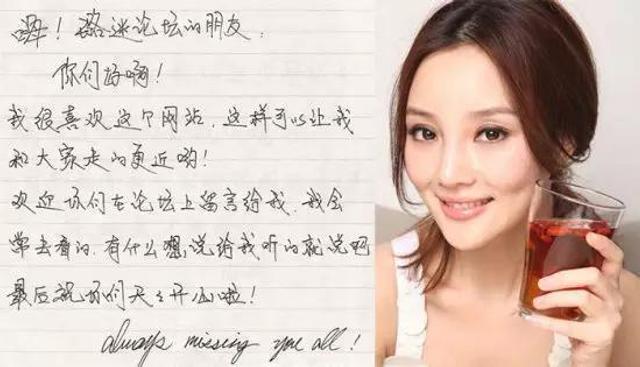 嗨！璐迷论坛的朋友,
你们好啊！
我很喜欢这个网站,这样可以让我
和大家走的更近哟！
欢迎你们在论坛上留言给我,我会
常去看的,有什么想说给我听的就说吧
最后祝你们天々开心啦！
always missing you all!